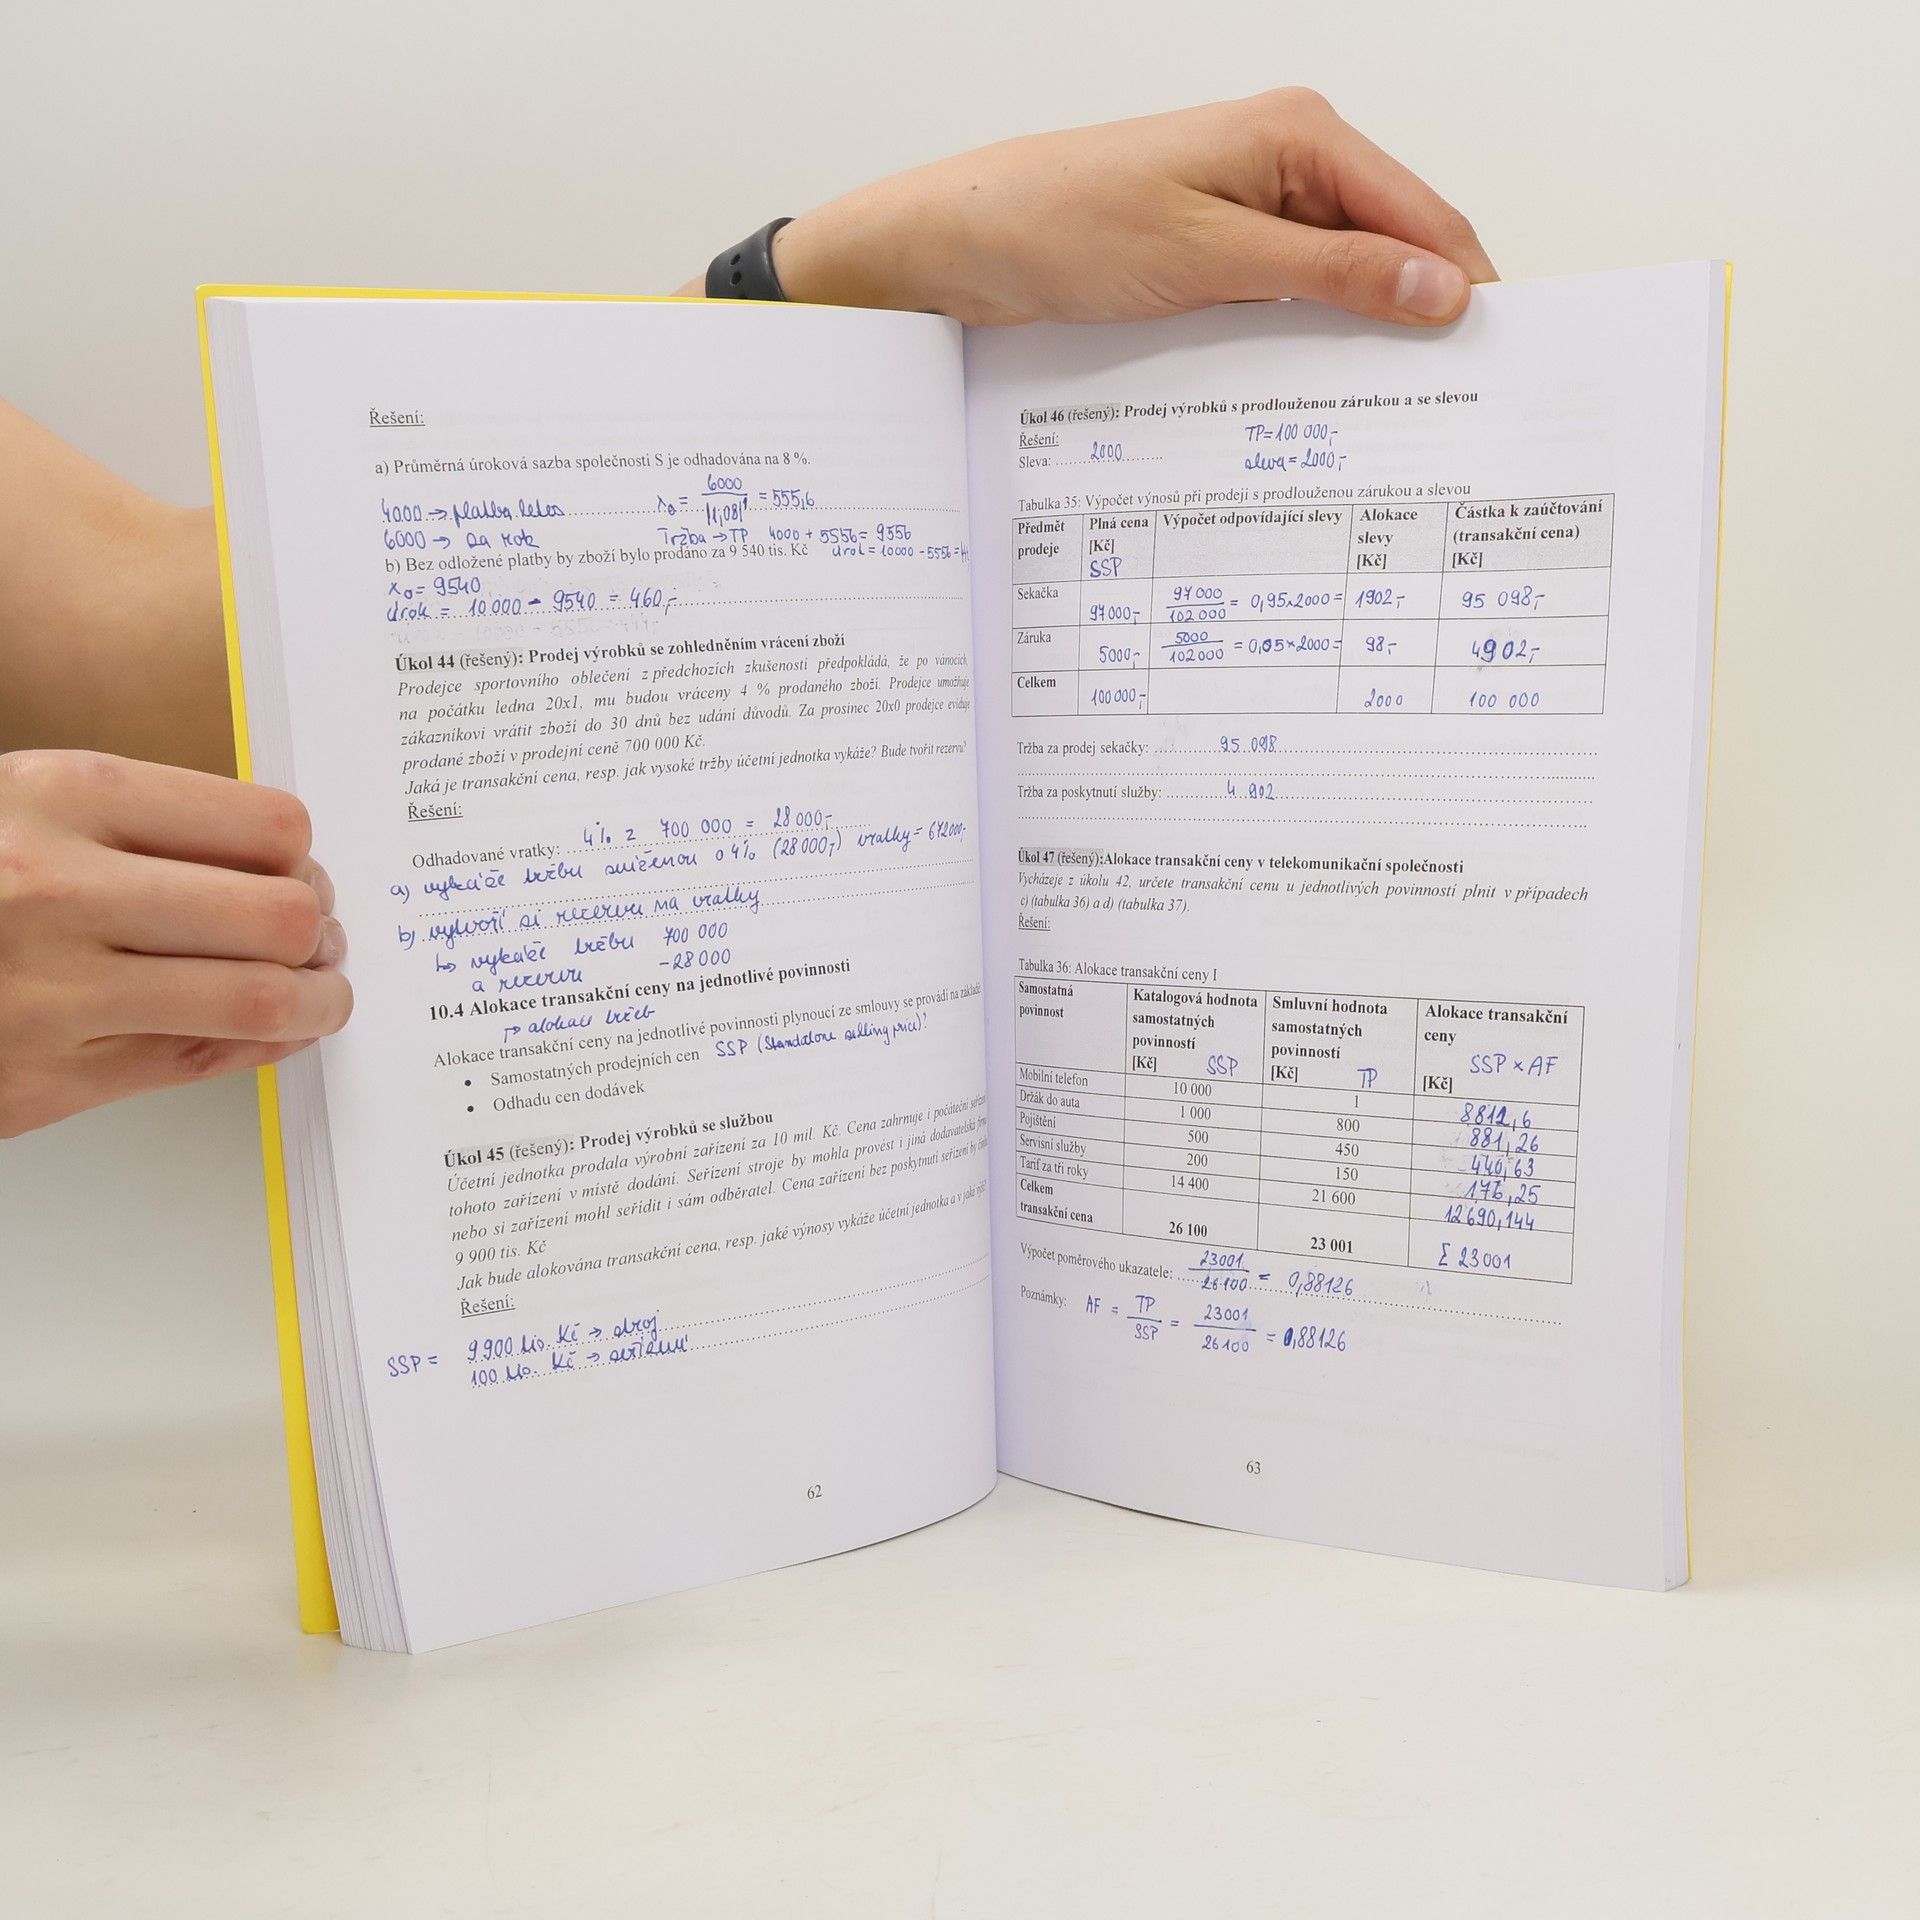 Řešení:
a) Průměrná úroková sazba společnosti S je odhadována na 8 %.
4000 → platba letos
x₀ = 6000 / (1,08)¹ = 555,6
6000 → za rok
Tržba → TP 4000 + 5556 = 9556
b) Bez odložené platby by zboží bylo prodáno za 9 540 tis. Kč
úrok = 10000 - 5556 =
x₀ = 9540
úrok = 10 000 - 9540 = 460,-
Úkol 44 (řešený): Prodej výrobků se zohledněním vrácení zboží
Prodejce sportovního oblečení z předchozích zkušeností předpokládá, že po vánocích,
na počátku ledna 20x1, mu budou vráceny 4 % prodaného zboží. Prodejce umožňuje
zákazníkovi vrátit zboží do 30 dnů bez udání důvodů. Za prosinec 20x0 prodejce eviduje
prodané zboží v prodejní ceně 700 000 Kč.
Jaká je transakční cena, resp. jak vysoké tržby účetní jednotka vykáže? Bude tvořit rezervu?
Řešení:
Odhadované vratky: 4% z 700 000 = 28 000,-
a) vykáže tržbu sníženou o 4% (28 000,-) vratky = 672000,-
b) vytvoří si rezervu na vratky
↳ vykáže tržbu 700 000
a rezervu -28 000
10.4 Alokace transakční ceny na jednotlivé povinnosti
↱ alokace tržeb
Alokace transakční ceny na jednotlivé povinnosti plynoucí ze smlouvy se provádí na základě
• Samostatných prodejních cen SSP (Standalone selling price)!
• Odhadu cen dodávek
Úkol 45 (řešený): Prodej výrobků se službou
Účetní jednotka prodala výrobní zařízení za 10 mil. Kč. Cena zahrnuje i počáteční seřízení
tohoto zařízení v místě dodání. Seřízení stroje by mohla provést i jiná dodavatelská firma
nebo si zařízení mohl seřídit i sám odběratel. Cena zařízení bez poskytnutí seřízení by činila
9 900 tis. Kč
Jak bude alokována transakční cena, resp. jaké výnosy vykáže účetní jednotka a v jaké výši?
Řešení:
SSP = 9 900 tis. Kč → stroj
100 tis. Kč → seřízení
62
Úkol 46 (řešený): Prodej výrobků s prodlouženou zárukou a se slevou
Řešení:
TP = 100 000,-
Sleva: 2000
sleva = 2000,-
Tabulka 35: Výpočet výnosů při prodeji s prodlouženou zárukou a slevou
Předmět prodeje | Plná cena [Kč] SSP | Výpočet odpovídající slevy | Alokace slevy [Kč] | Částka k zaúčtování (transakční cena) [Kč]
Sekačka | 97 000,- | 97 000 / 102 000 = 0,95 × 2000 = | 1902,- | 95 098,-
Záruka | 5000,- | 5000 / 102 000 = 0,05 × 2000 = | 98,- | 4902,-
Celkem | 100 000,- | | 2000 | 100 000
Tržba za prodej sekačky: 95 098
Tržba za poskytnutí služby: 4 902
Úkol 47 (řešený):Alokace transakční ceny v telekomunikační společnosti
Vycházeje z úkolu 42, určete transakční cenu u jednotlivých povinností plnit v případech
c) (tabulka 36) a d) (tabulka 37).
Řešení:
Tabulka 36: Alokace transakční ceny I
Samostatná povinnost | Katalogová hodnota samostatných povinností [Kč] SSP | Smluvní hodnota samostatných povinností [Kč] TP | Alokace transakční ceny [Kč] SSP × AF
Mobilní telefon | 10 000 | 1 | 8812,6
Držák do auta | 1 000 | 800 | 881,26
Pojištění | 500 | 450 | 440,63
Servisní služby | 200 | 150 | 176,25
Tarif za tři roky | 14 400 | 21 600 | 12 690,144
Celkem transakční cena | 26 100 | 23 001 | Σ 23 001
Výpočet poměrového ukazatele: 23001 / 26 100 = 0,88126
Poznámky: AF = TP / SSP = 23001 / 26 100 = 0,88126
63